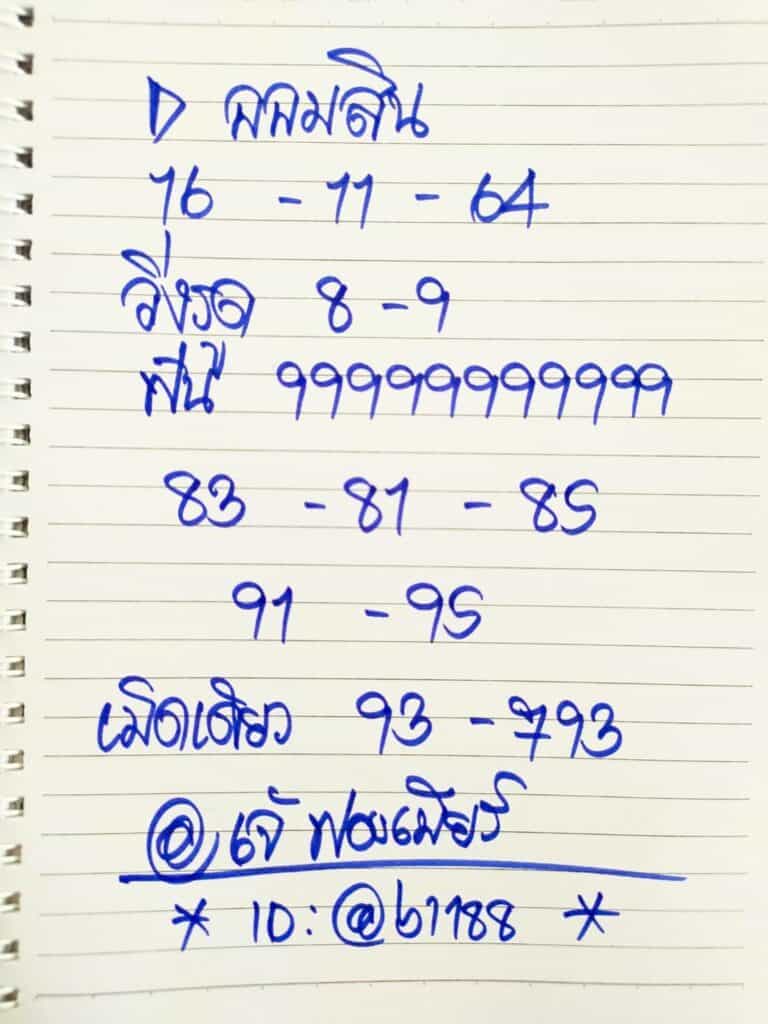 ▷ ออมสิน
16 - 11 - 64
วิ่งรูด 8 - 9
ฟันธง 999999999999
83 - 81 - 85
91 - 95
เม็ดเดียว 93 - 793
@ เจ๊ ฟองเบียร์
* ID : @b1188 *